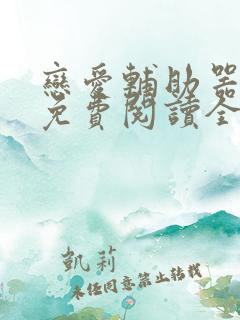 戀愛輔助器
免費閱讀全
凱莉
未經同意禁止轉載